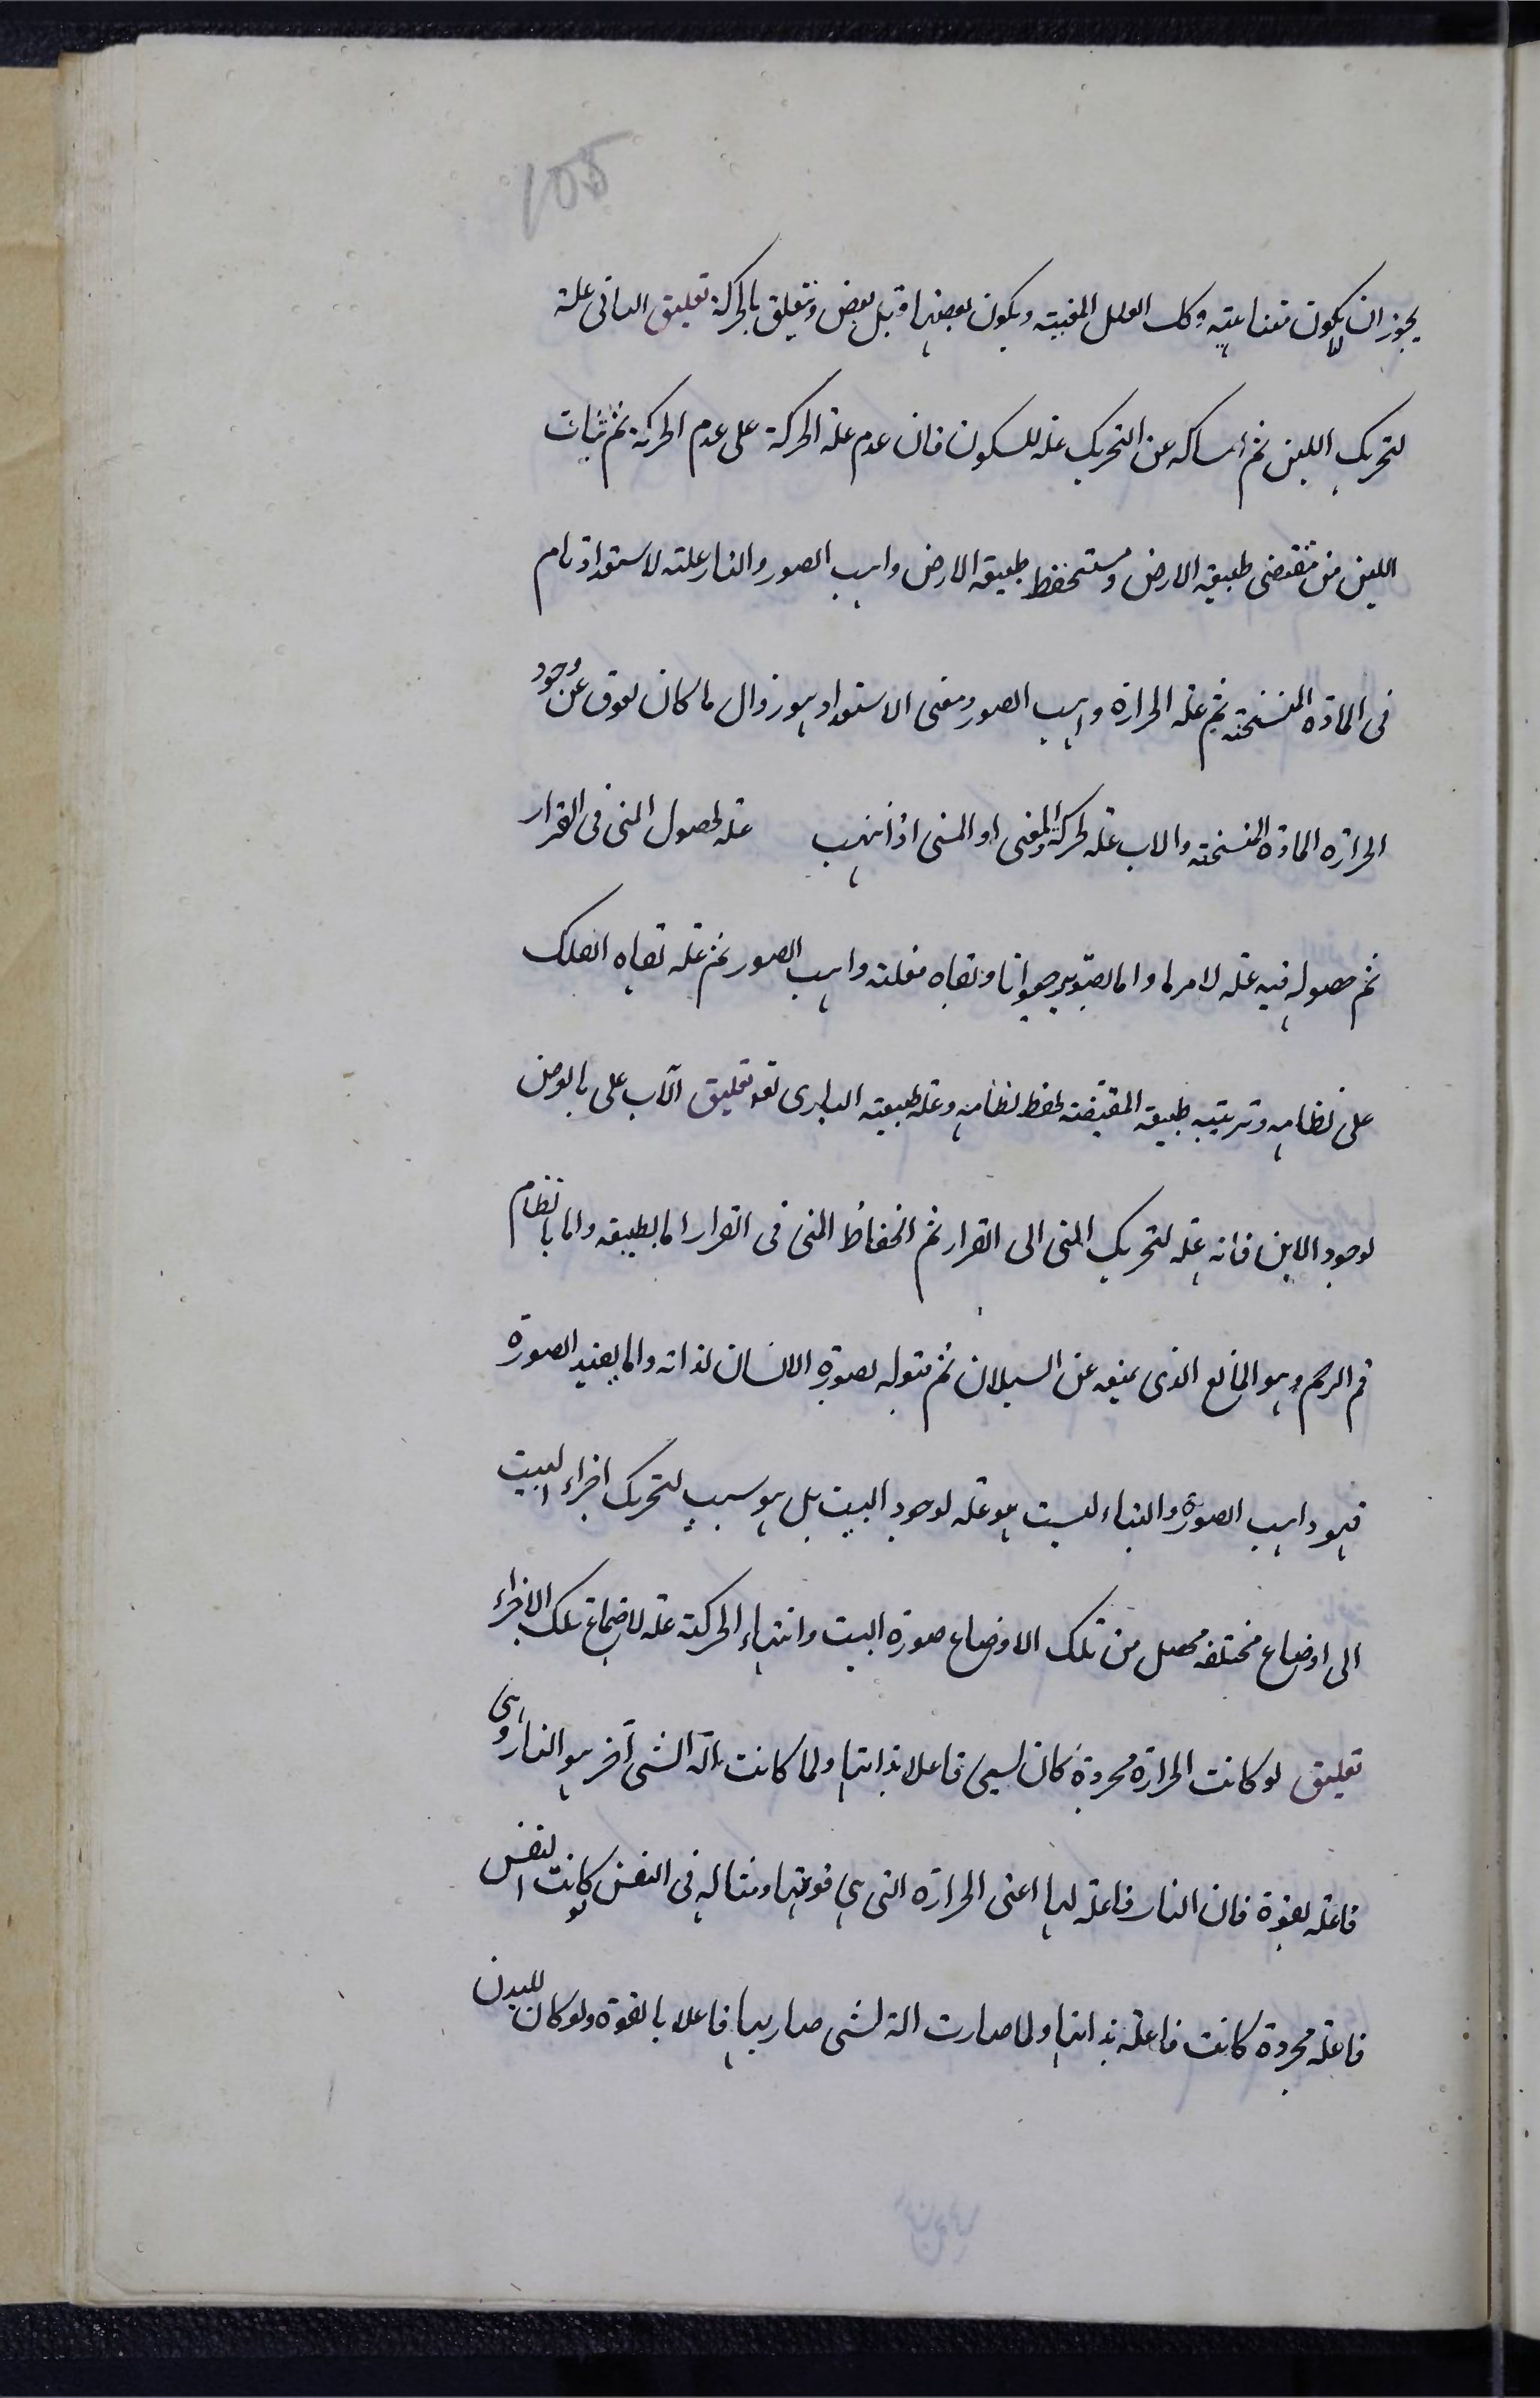 105
يجوز ان يكون لا متناهية وكك العلل المغيبة ويكون بعضها قبل بعض ويتعلق بالحركة تعليق البانى علة
لتحريك اللبن ثم امساكه عن التحريك علة للسكون فان عدم علة الحركة على عدم الحركة ثم ثبات
اللبن من مقتضى طبيعة الارض ومستحفظ طبيعة الارض واهب الصور والنار علته لاستعداد تام
فى المادة المتسخنة ثم علة الحرارة واهب الصور ومعنى الاستعداد هو زوال ما كان يعوق عن وجود
الحرارة المادة المتسخنة والاب علة لحركة المنى او المنى اذا انتهت علة لحصول المنى فى القرار
ثم حصوله فيه علة لامر ما واما تصويره حيوانا وبقاه فعلته واهب الصور ثم علة بقاه الفلك
على نظامه وترتيبه طبيعة المقتضية لحفظ نظامه وعلة طبيعته البارى تعه تعليق الاب على بالعرض
لوجود الابن فانه علة لتحريك المنى الى القرار ثم انحفاظ المنى فى القرار اما بطبيعة واما بانظام
فم الرحم وهو المانع الذى يمنعه عن السيلان ثم قبوله لصورة الانسان لذاته واما يفيد الصورة
فهو واهب الصورة والبناء ليست هو علة لوجود البيت بل هو سبب لتحريك اجزاء البيت
الى اوضاع مختلفة محصل من تلك الاوضاع صورة البيت وانتهاء الحركة علة لاجتماع تلك الاجزاء
تعليق لو كانت الحرارة مجردة كان يسمى فاعلا بذاتها ولما كانت بآلة الشى آخر هو النار وهى
فاعلة بقوة فان النار فاعلة لها اعنى الحرارة التى هى قوتها ومثاله فى النفس لو كانت النفس
فاعلة مجردة كانت فاعلة بذاتها ولما صارت الة لشى صار بها فاعلا بالقوة ولو كان للبدن